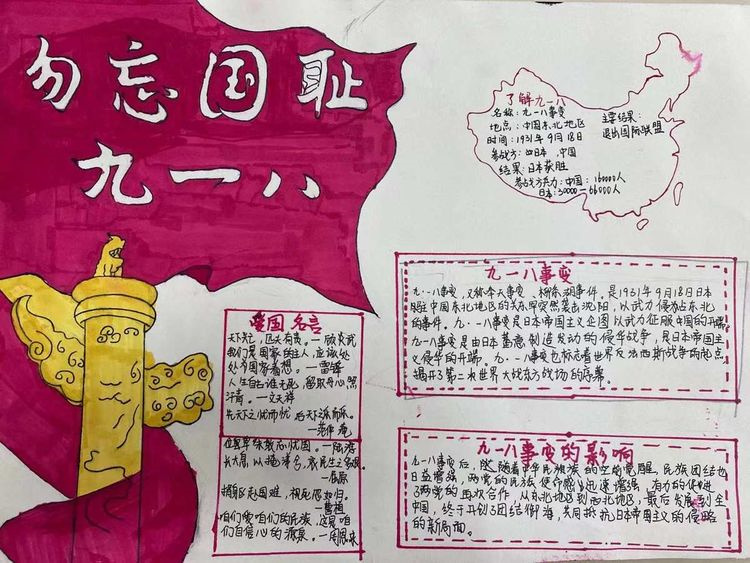 勿忘国耻
九一八
了解九一八
名称：九一八事变
地点：中国东北地区
时间：1931年9月18日
参战方：日本，中国
结果：日本获胜
参战方兵力：中国：160000人
日本：30000—66000人
主要结果：
退出国际联盟
爱国名言
天下兴亡，匹夫有责。—顾炎武
我们是国家的主人，应该处
处为国家着想。—雷锋
人生自古谁无死，留取丹心照
汗青。—文天祥
先天下之忧而忧 后天下之乐而乐。
—范仲淹
位卑未敢忘忧国。—陆游
长太息以掩涕兮，哀民生之多艰。
—屈原
捐躯赴国难，视死忽如归。
—曹植
—周恩来
九一八事变
九·一八事变，又称奉天事变、柳条湖事件。是1931年9月18日日
中国东北地区的关东军突然袭击沈阳，以武力侵占东北
的事件。九·一八事变是日本帝国主义企图以武力征服中国的开端。
九一八事变是由日本蓄意制造发动的侵华战争，是日本帝国主
义侵华的开端。九一八事变也标志着世界反法西斯战争的起点，
揭开了第二次世界大战东方战场的序幕。
九一八事变的影响
九一八事变后，随着中华民族的空前觉醒，民族团结也
日益增强，两党的民族使命感迅速增强，有力的促进
了两党的再次合作，从东北地区到西北地区，最后发展到全
中国，终于开创了团结御侮，共同抵抗日本帝国主义的侵略
的新局面。